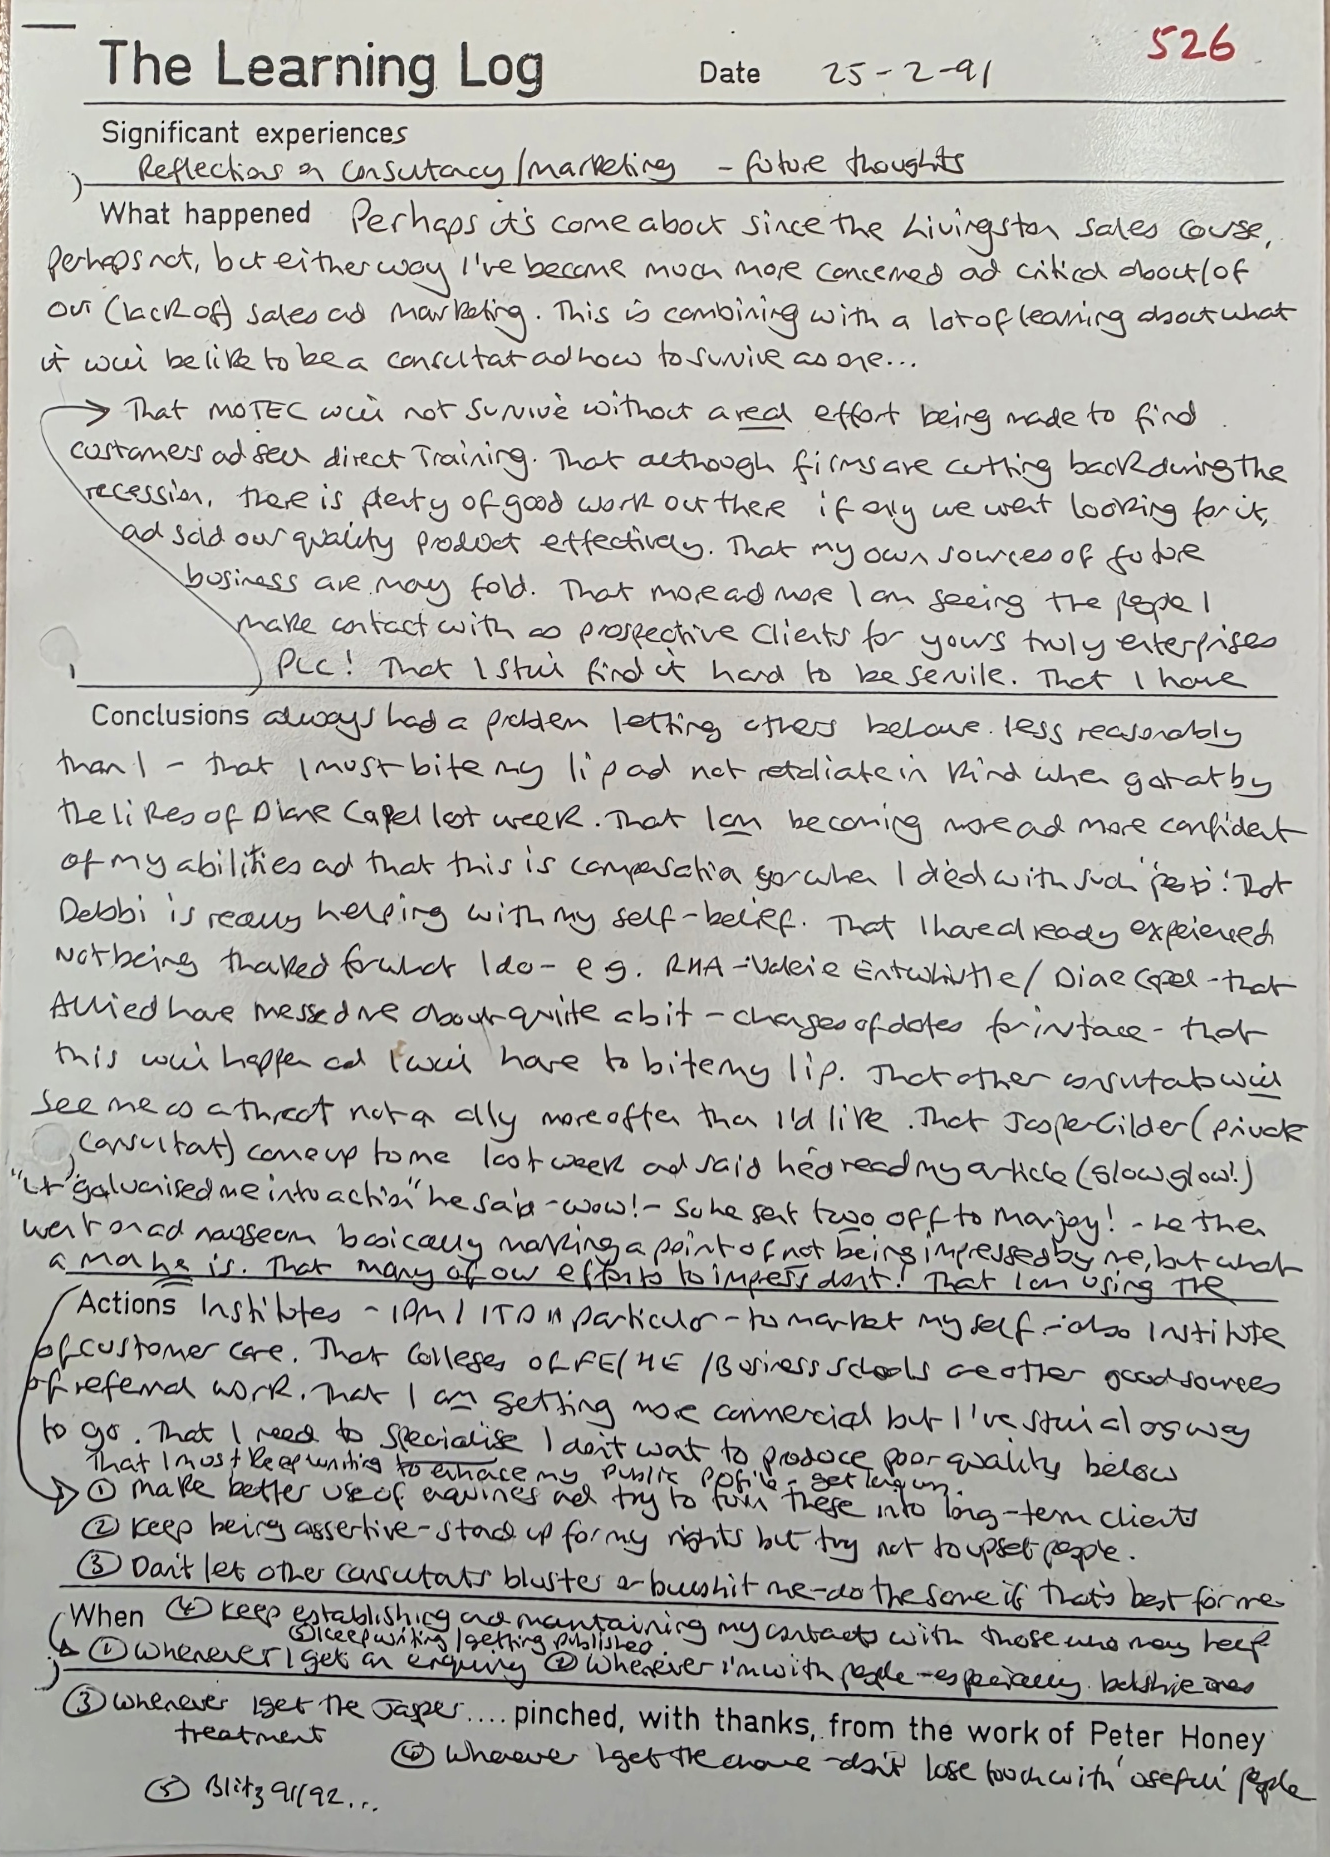 526
The Learning Log Date 25-2-91
Significant experiences
Reflections on Consultancy/Marketing - future thoughts
What happened Perhaps it's come about since the Livingston sales course,
perhaps not, but either way I've become much more concerned and critical about/of
our (lack of) sales and marketing. This is combining with a lot of learning about what
it will be like to be a consultant and how to survive as one...
→ That MOTEC will not survive without a real effort being made to find
customers and sell direct Training. That although firms are cutting back during the
recession, there is plenty of good work out there if only we went looking for it,
and sold our quality product effectively. That my own sources of future
business are many fold. That more and more I am seeing the people I
make contact with as prospective clients for yours truly enterprises
PLC! That I still find it hard to be servile. That I have
Conclusions always had a problem letting others behave less reasonably
than I - that I must bite my lip and not retaliate in kind when got at by
the likes of Diane Capel last week. That I am becoming more and more confident
of my abilities and that this is compensation for when I deal with such 'people'. That
Debbi is really helping with my self-belief. That I have already experienced
not being thanked for what I do - e.g. RHA - Valerie Entwhistle/Diane Capel - that
Allied have messed me about quite a bit - changes of dates for instance - that
this will happen and I will have to bite my lip. That other consultants will
see me as a threat not an ally more often than I'd like. That Jasper Gilder (private
consultant) came up to me last week and said he'd read my article (glow glow!)
"It galvanised me into action" he said - wow! - so he sent two off to Marjoy! - he then
went on ad nauseam basically making a point of not being impressed by me, but what
a man he is. That many of our efforts to impress don't! That I am using the
Actions Institutes - IPM/ITD in particular - to market myself - also Institute
of customer care. That Colleges of FE/HE/Business Schools are other good sources
of referral work. That I am getting more commercial but I've still a long way
to go. That I need to specialise I don't want to produce poor quality below
That I must keep writing to enhance my public profile - get known.
① make better use of enquiries and try to turn these into long-term clients
② Keep being assertive - stand up for my rights but try not to upset people.
③ Don't let other consultants bluster or bullshit me - do the same if that's best for me
When ④ Keep establishing and maintaining my contacts with those who may help
⑤ Keep writing/getting published
① Whenever I get an enquiry ② Wherever I'm with people - especially bolshie ones
③ Whenever I get the Jasper.... pinched, with thanks, from the work of Peter Honey
treatment
④ Whenever I get the chance - don't lose touch with 'useful' people
⑤ Blitz 91/92...